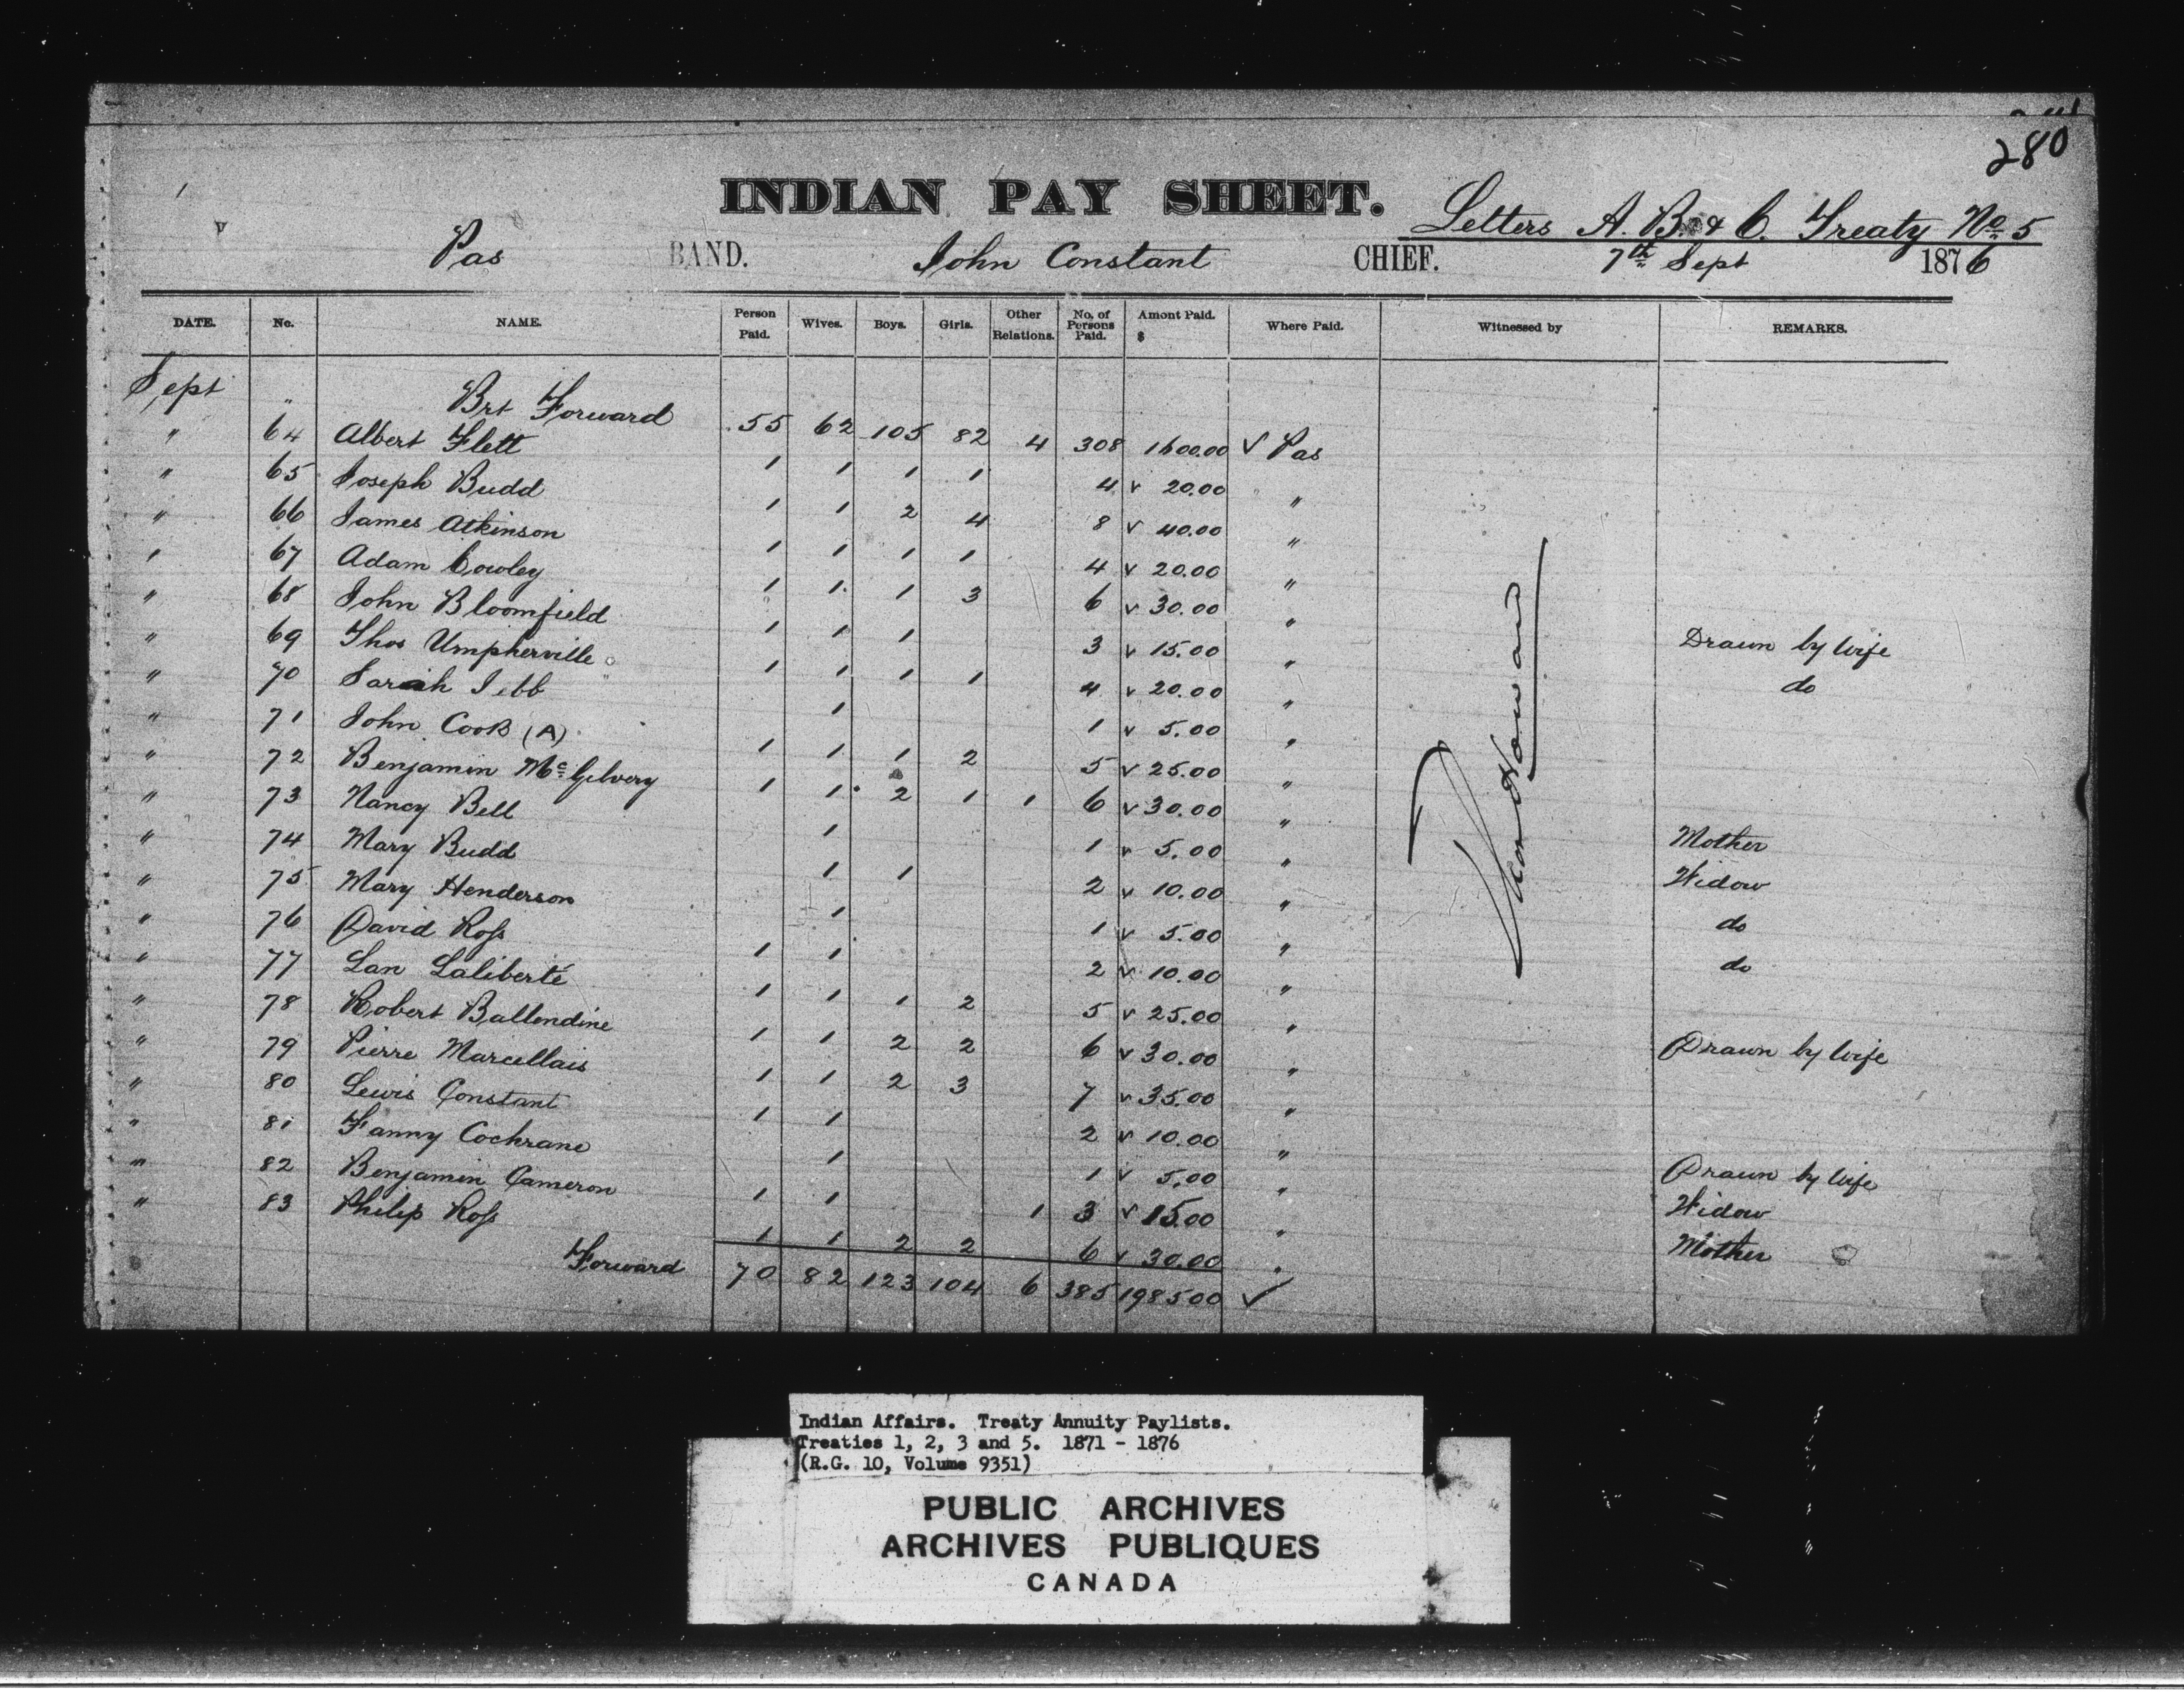 280
INDIAN PAY SHEET.
Letters A. B. & C. Treaty No 5
Pas BAND. John Constant CHIEF. 7th Sept 1876
DATE. No. NAME. Person Paid. Wives. Boys. Girls. Other Relations. No. of Persons Paid. Amont Paid. $ Where Paid. Witnessed by REMARKS.
Sept " Brt Forward 55 62 105 82 4 308 1600.00 ✓ Pas
" 64 Albert Flett 1 1 1 1 4 ✓ 20.00 "
" 65 Joseph Budd 1 1 2 4 8 ✓ 40.00 "
" 66 James Atkinson 1 1 1 1 4 ✓ 20.00 "
" 67 Adam Cowley 1 1 1 3 6 ✓ 30.00 " Drawn by wife
" 68 John Bloomfield 1 1 1 3 ✓ 15.00 " do
" 69 Thos Umpherville 1 1 1 1 4 ✓ 20.00 "
" 70 Sarah Jebb 1 1 ✓ 5.00 "
" 71 John Cook (A) 1 1 1 2 5 ✓ 25.00 "
" 72 Benjamin McGilvery 1 1 2 1 1 6 ✓ 30.00 " Mother
" 73 Nancy Bell 1 1 ✓ 5.00 " Widow
" 74 Mary Budd 1 1 2 ✓ 10.00 " do
" 75 Mary Henderson 1 1 ✓ 5.00 " do
" 76 David Ross 1 1 2 ✓ 10.00 "
" 77 Lan Laliberté 1 1 1 2 5 ✓ 25.00 " Drawn by wife
" 78 Robert Ballendine 1 1 2 2 6 ✓ 30.00 "
" 79 Pierre Marcellais 1 1 2 3 7 ✓ 35.00 "
" 80 Lewis Constant 1 1 2 ✓ 10.00 " Drawn by wife
" 81 Fanny Cochrane 1 1 ✓ 5.00 " Widow
" 82 Benjamin Cameron 1 1 1 3 ✓ 15.00 " Mother
" 83 Philip Ross 1 1 2 2 6 ✓ 30.00 "
Forward 70 82 123 104 6 385 1985 00 ✓
Indian Affairs. Treaty Annuity Paylists.
Treaties 1, 2, 3 and 5. 1871 - 1876
(R.G. 10, Volume 9351)
PUBLIC ARCHIVES
ARCHIVES PUBLIQUES
CANADA